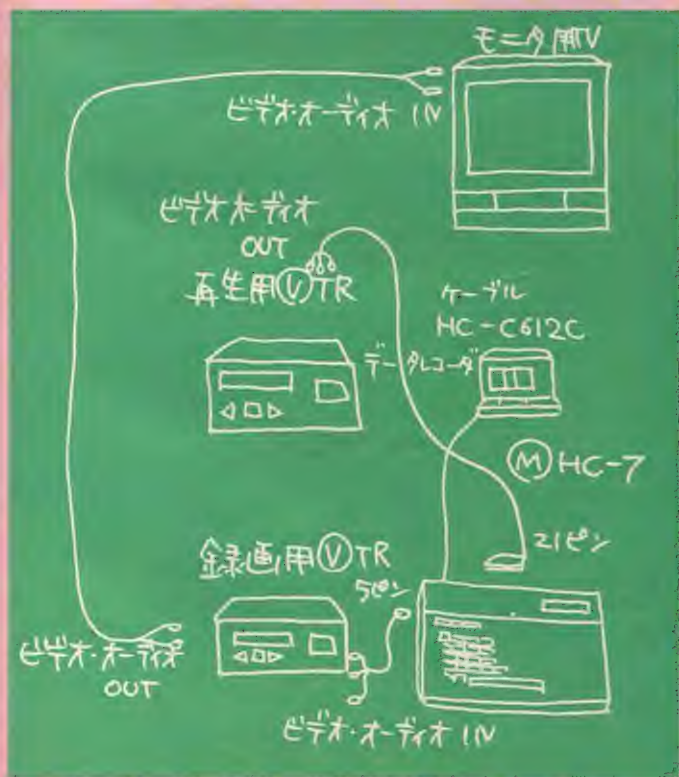 モニタ用TV
ビデオ・オーディオ IN
ビデオ オーディオ
OUT
再生用ⓋTR
ケーブル
HC-C612C
データレコーダ
ⓂHC-7
21ピン
録画用ⓋTR
5ピン
ビデオ・オーディオ
OUT
ビデオ・オーディオ IN